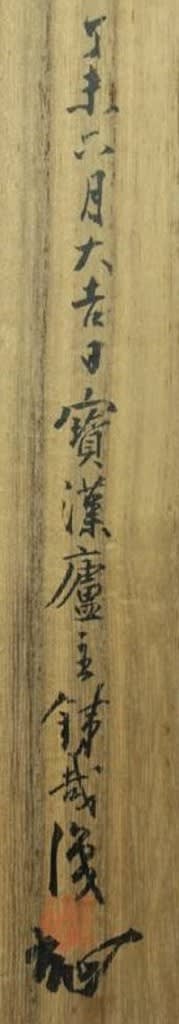 丁未六月大吉日寶漢廬主錬哉